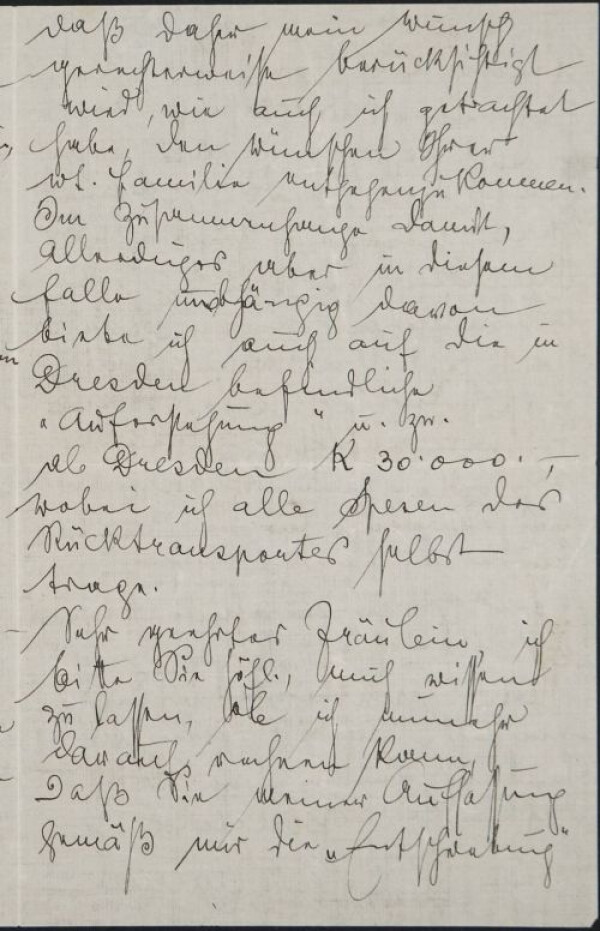 daß daher mein Wunsch
gerechterweise berücksichtigt
wird, wie auch ich getrachtet
habe, den Wünschen Ihrer
w. Familie entgegenzukommen.
Im Zusammenhange damit,
allerdings aber in diesem
Falle unabhängig davon
biete ich auch auf die in
Dresden befindliche
"Auferstehung" u. zw.
ab Dresden K 30·000·–,
wobei ich alle Spesen des
Rücktransportes selbst
trage.
Sehr geehrtes Fräulein, ich
bitte Sie höfl., mich wissen
zu lassen, ob ich nunmehr
darauf rechnen kann,
daß Sie meiner Auffassung
gemäß mir die „Entschwebung"